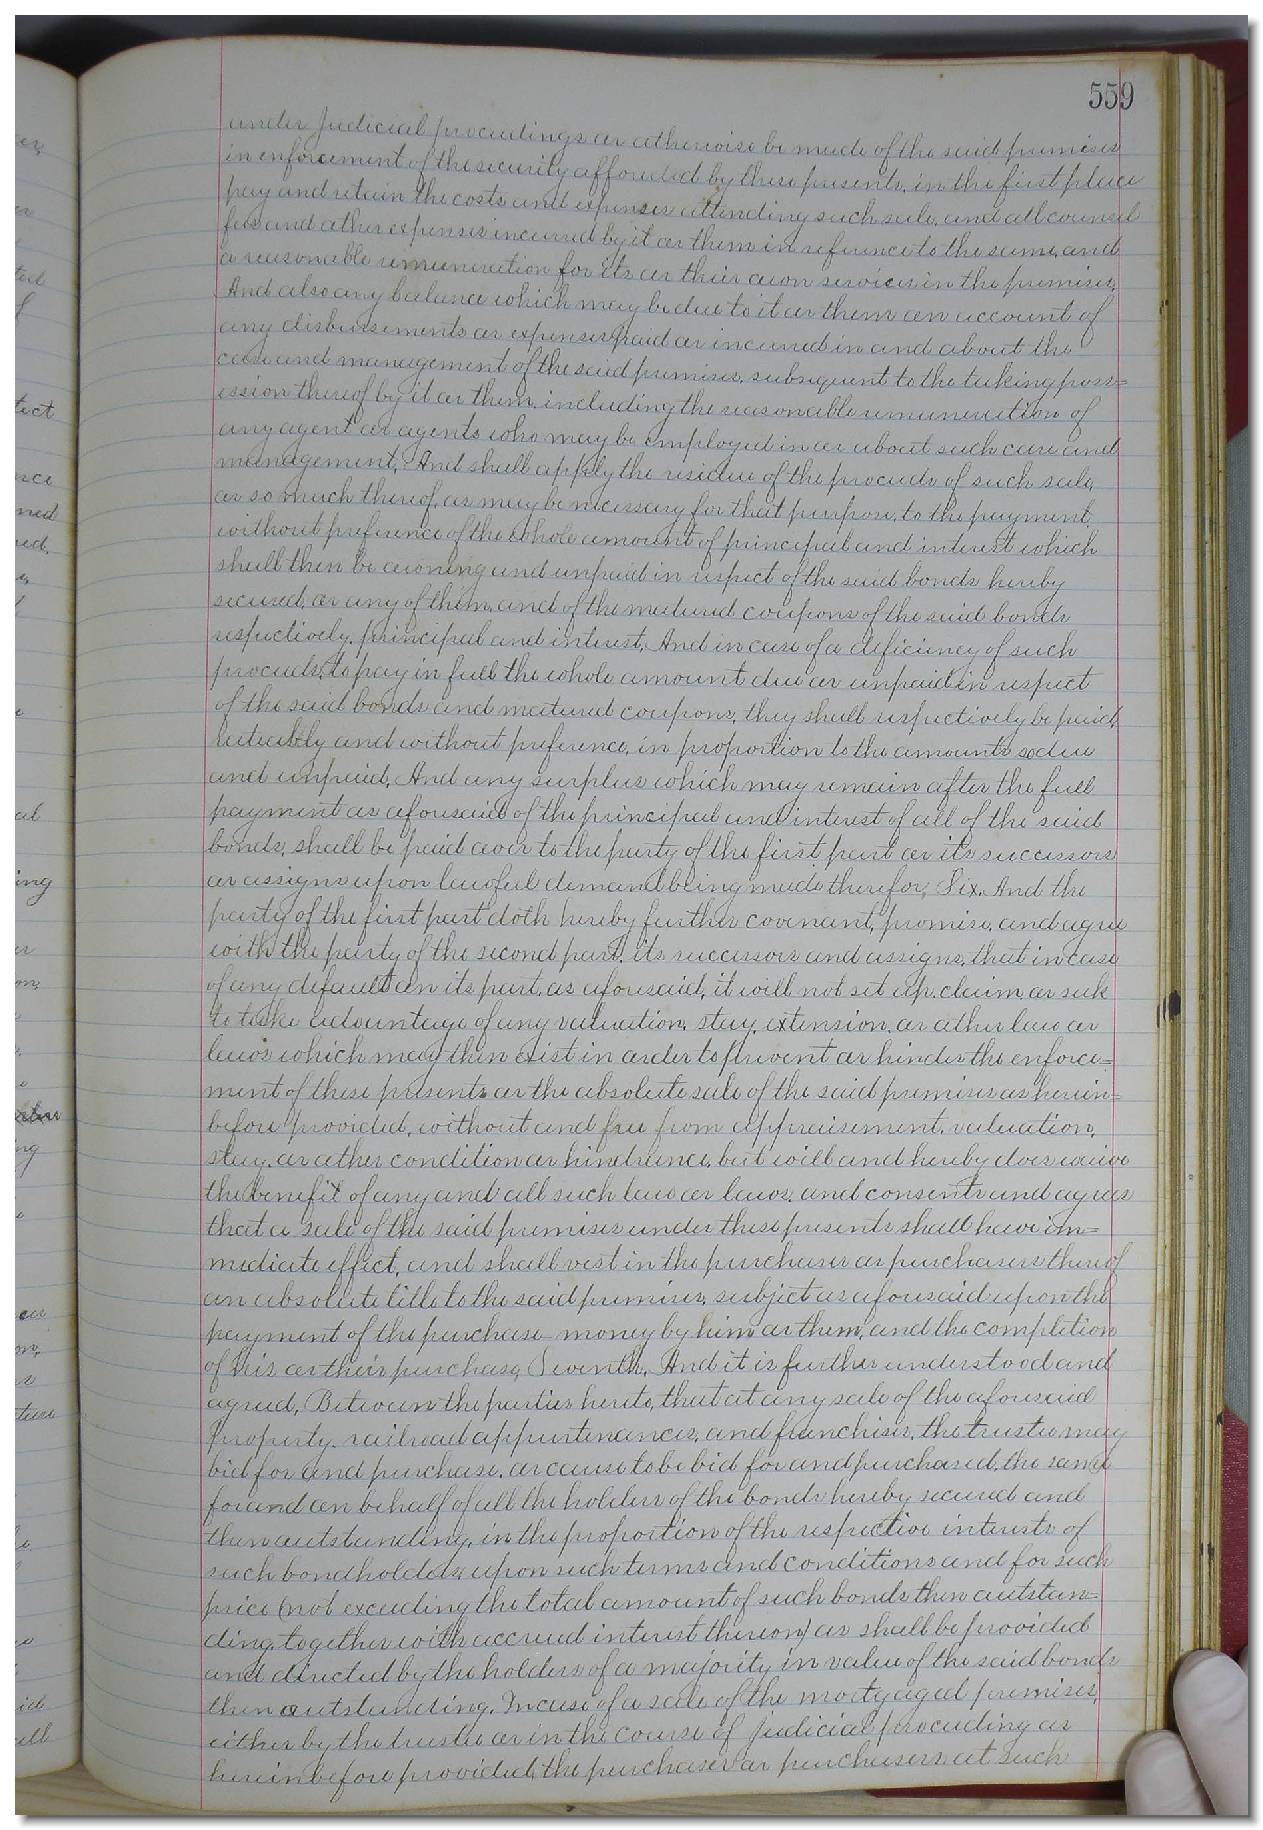 559
under judicial proceedings or otherwise be made of the said premises
in enforcement of the security afforded by these presents, in the first place
pay and retain the costs and expenses attending such sale, and all counsel
fees and other expenses incurred by it or them in reference to the same, and
a reasonable remuneration for its or their own services in the premises,
And also any balance which may be due to it or them on account of
any disbursements or expenses paid or incurred in and about the
care and management of the said premises, subsequent to the taking poss=
ession thereof by it or them, including the reasonable remuneration of
any agent or agents who may be employed in or about such care and
management, And shall apply the residue of the proceeds of such sale,
or so much thereof, as may be necessary for that purpose, to the payment,
without preference of the whole amount of principal and interest which
shall then be owning and unpaid in respect of the said bonds hereby
secured, or any of them, and of the matured coupons of the said bonds
respectively, principal and interest, And in case of a deficiency of such
proceeds, to pay in full the whole amount due or unpaid in respect
of the said bonds and matured coupons, they shall respectively be paid,
ratably and without preference, in proportion to the amounts so due
and unpaid, And any surplus which may remain after the full
payment as aforesaid of the principal and interest of all of the said
bonds, shall be paid over to the party of the first part or its successors
or assigns upon lawful demand being made therefor, Six. And the
party of the first part doth hereby further covenant, promise, and agree
with the party of the second part, its successors and assigns, that in case
of any default on its part, as aforesaid, it will not set up, claim or seek
to take advantage of any valuation, stay, extension, or other law or
laws which may then exist in order to prevent or hinder the enforce=
ment of these presents or the absolute sale of the said premises as herein=
before provided, without and free from appraisement, valuation,
stay, or other condition or hindrance, but will and hereby does waive
the benefit of any and all such law or laws, and consents and agrees
that a sale of the said premises under these presents shall have im=
mediate effect, and shall vest in the purchaser or purchasers thereof
an absolute title to the said premises, subject as aforesaid upon the
payment of the purchase money by him or them, and the completion
of his or their purchase, Seventh, And it is further understood and
agreed, Between the parties hereto, that at any sale of the aforesaid
property, railroad appurtenances, and franchises, the trustee may
bid for and purchase, or cause to be bid for and purchased, the same
for and on behalf of all the holders of the bonds hereby secured and
then outstanding, in the proportion of the respective interests of
such bondholders, upon such terms and conditions and for such
price (not exceeding the total amount of such bonds then outstan=
ding, together with accrued interest thereon) as shall be provided
and directed by the holders of a majority in value of the said bonds
then outstanding. In case of a sale of the mortgaged premises,
either by the trustee or in the course of judicial proceeding as
hereinbefore provided, the purchaser or purchasers at such